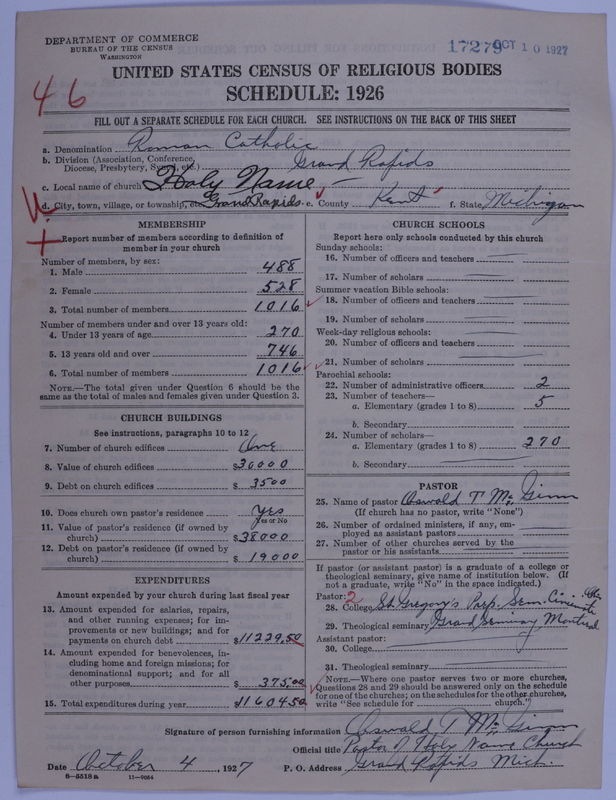 DEPARTMENT OF COMMERCE
BUREAU OF THE CENSUS
WASHINGTON
17279 OCT 10 1927
UNITED STATES CENSUS OF RELIGIOUS BODIES
SCHEDULE: 1926
46
FILL OUT A SEPARATE SCHEDULE FOR EACH CHURCH. SEE INSTRUCTIONS ON THE BACK OF THIS SHEET
a. Denomination Roman Catholic
b. Division (Association, Conference, Diocese, Presbytery, Synod, etc.) Grand Rapids
c. Local name of church Holy Name
d. City, town, village, or township, etc. Grand Rapids e. County Kent f. State, Michigan
MEMBERSHIP
Report number of members according to definition of
member in your church
Number of members, by sex:
1. Male 488
2. Female 528
3. Total number of members 1016
Number of members under and over 13 years old:
4. Under 13 years of age 270
5. 13 years old and over 746
6. Total number of members 1016
NOTE.—The total given under Question 6 should be the
same as the total of males and females given under Question 3.
CHURCH BUILDINGS
See instructions, paragraphs 10 to 12
7. Number of church edifices One
8. Value of church edifices $30000
9. Debt on church edifices $3500
10. Does church own pastor's residence? Yes
Yes or No
11. Value of pastor's residence (if owned by
church) $38000
12. Debt on pastor's residence (if owned by
church) $19000
EXPENDITURES
Amount expended by your church during last fiscal year
13. Amount expended for salaries, repairs,
and other running expenses; for im-
provements or new buildings; and for
payments on church debt $11229.50
14. Amount expended for benevolences, in-
cluding home and foreign missions; for
denominational support; and for all
other purposes $375.00
15. Total expenditures during year $11604.50
CHURCH SCHOOLS
Report here only schools conducted by this church
Sunday schools:
16. Number of officers and teachers
17. Number of scholars
Summer vacation Bible schools:
18. Number of officers and teachers
19. Number of scholars
Week-day religious schools:
20. Number of officers and teachers
21. Number of scholars
Parochial schools:
22. Number of administrative officers 2
23. Number of teachers—
a. Elementary (grades 1 to 8) 5
b. Secondary
24. Number of scholars—
a. Elementary (grades 1 to 8) 270
b. Secondary
PASTOR
25. Name of pastor Oswald T McGinn
(If church has no pastor, write "None")
26. Number of ordained ministers, if any, em-
ployed as assistant pastors
27. Number of other churches served by the
pastor or his assistants
If pastor (or assistant pastor) is a graduate of a college or
theological seminary, give name of institution below. (If
not a graduate, write "No" in the space indicated.)
Pastor: 2
28. College, St. Gregory's Prep. Sem. Cincinnati Ohio
29. Theological seminary, Grand Seminary Montreal
Assistant pastor:
30. College
31. Theological seminary
NOTE.—Where one pastor serves two or more churches,
Questions 28 and 29 should be answered only on the schedule
for one of the churches; on the schedules for the other churches,
write "See schedule for church.")
Signature of person furnishing information Oswald T McGinn
Official title Pastor of Holy Name Church
Date October 4, 1927 P. O. Address Grand Rapids Mich.
6-5518a 11-9064